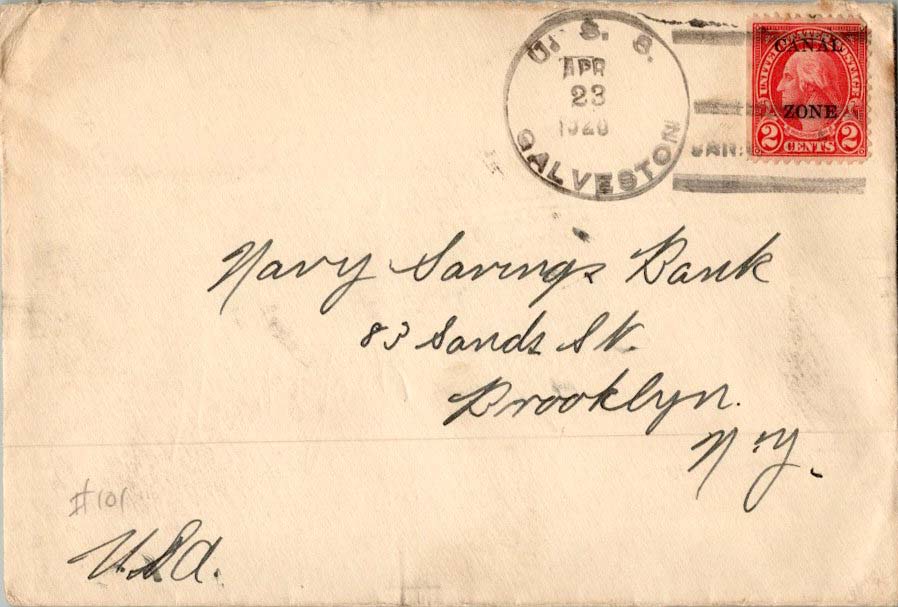 U. S. S.
APR
23
GALVESTON
UNITED STATES POSTAGE
CANAL
ZONE
2 CENTS 2
Navy Savings Bank
83 Sands St.
Brooklyn.
N.Y.
#101
U.S.A.